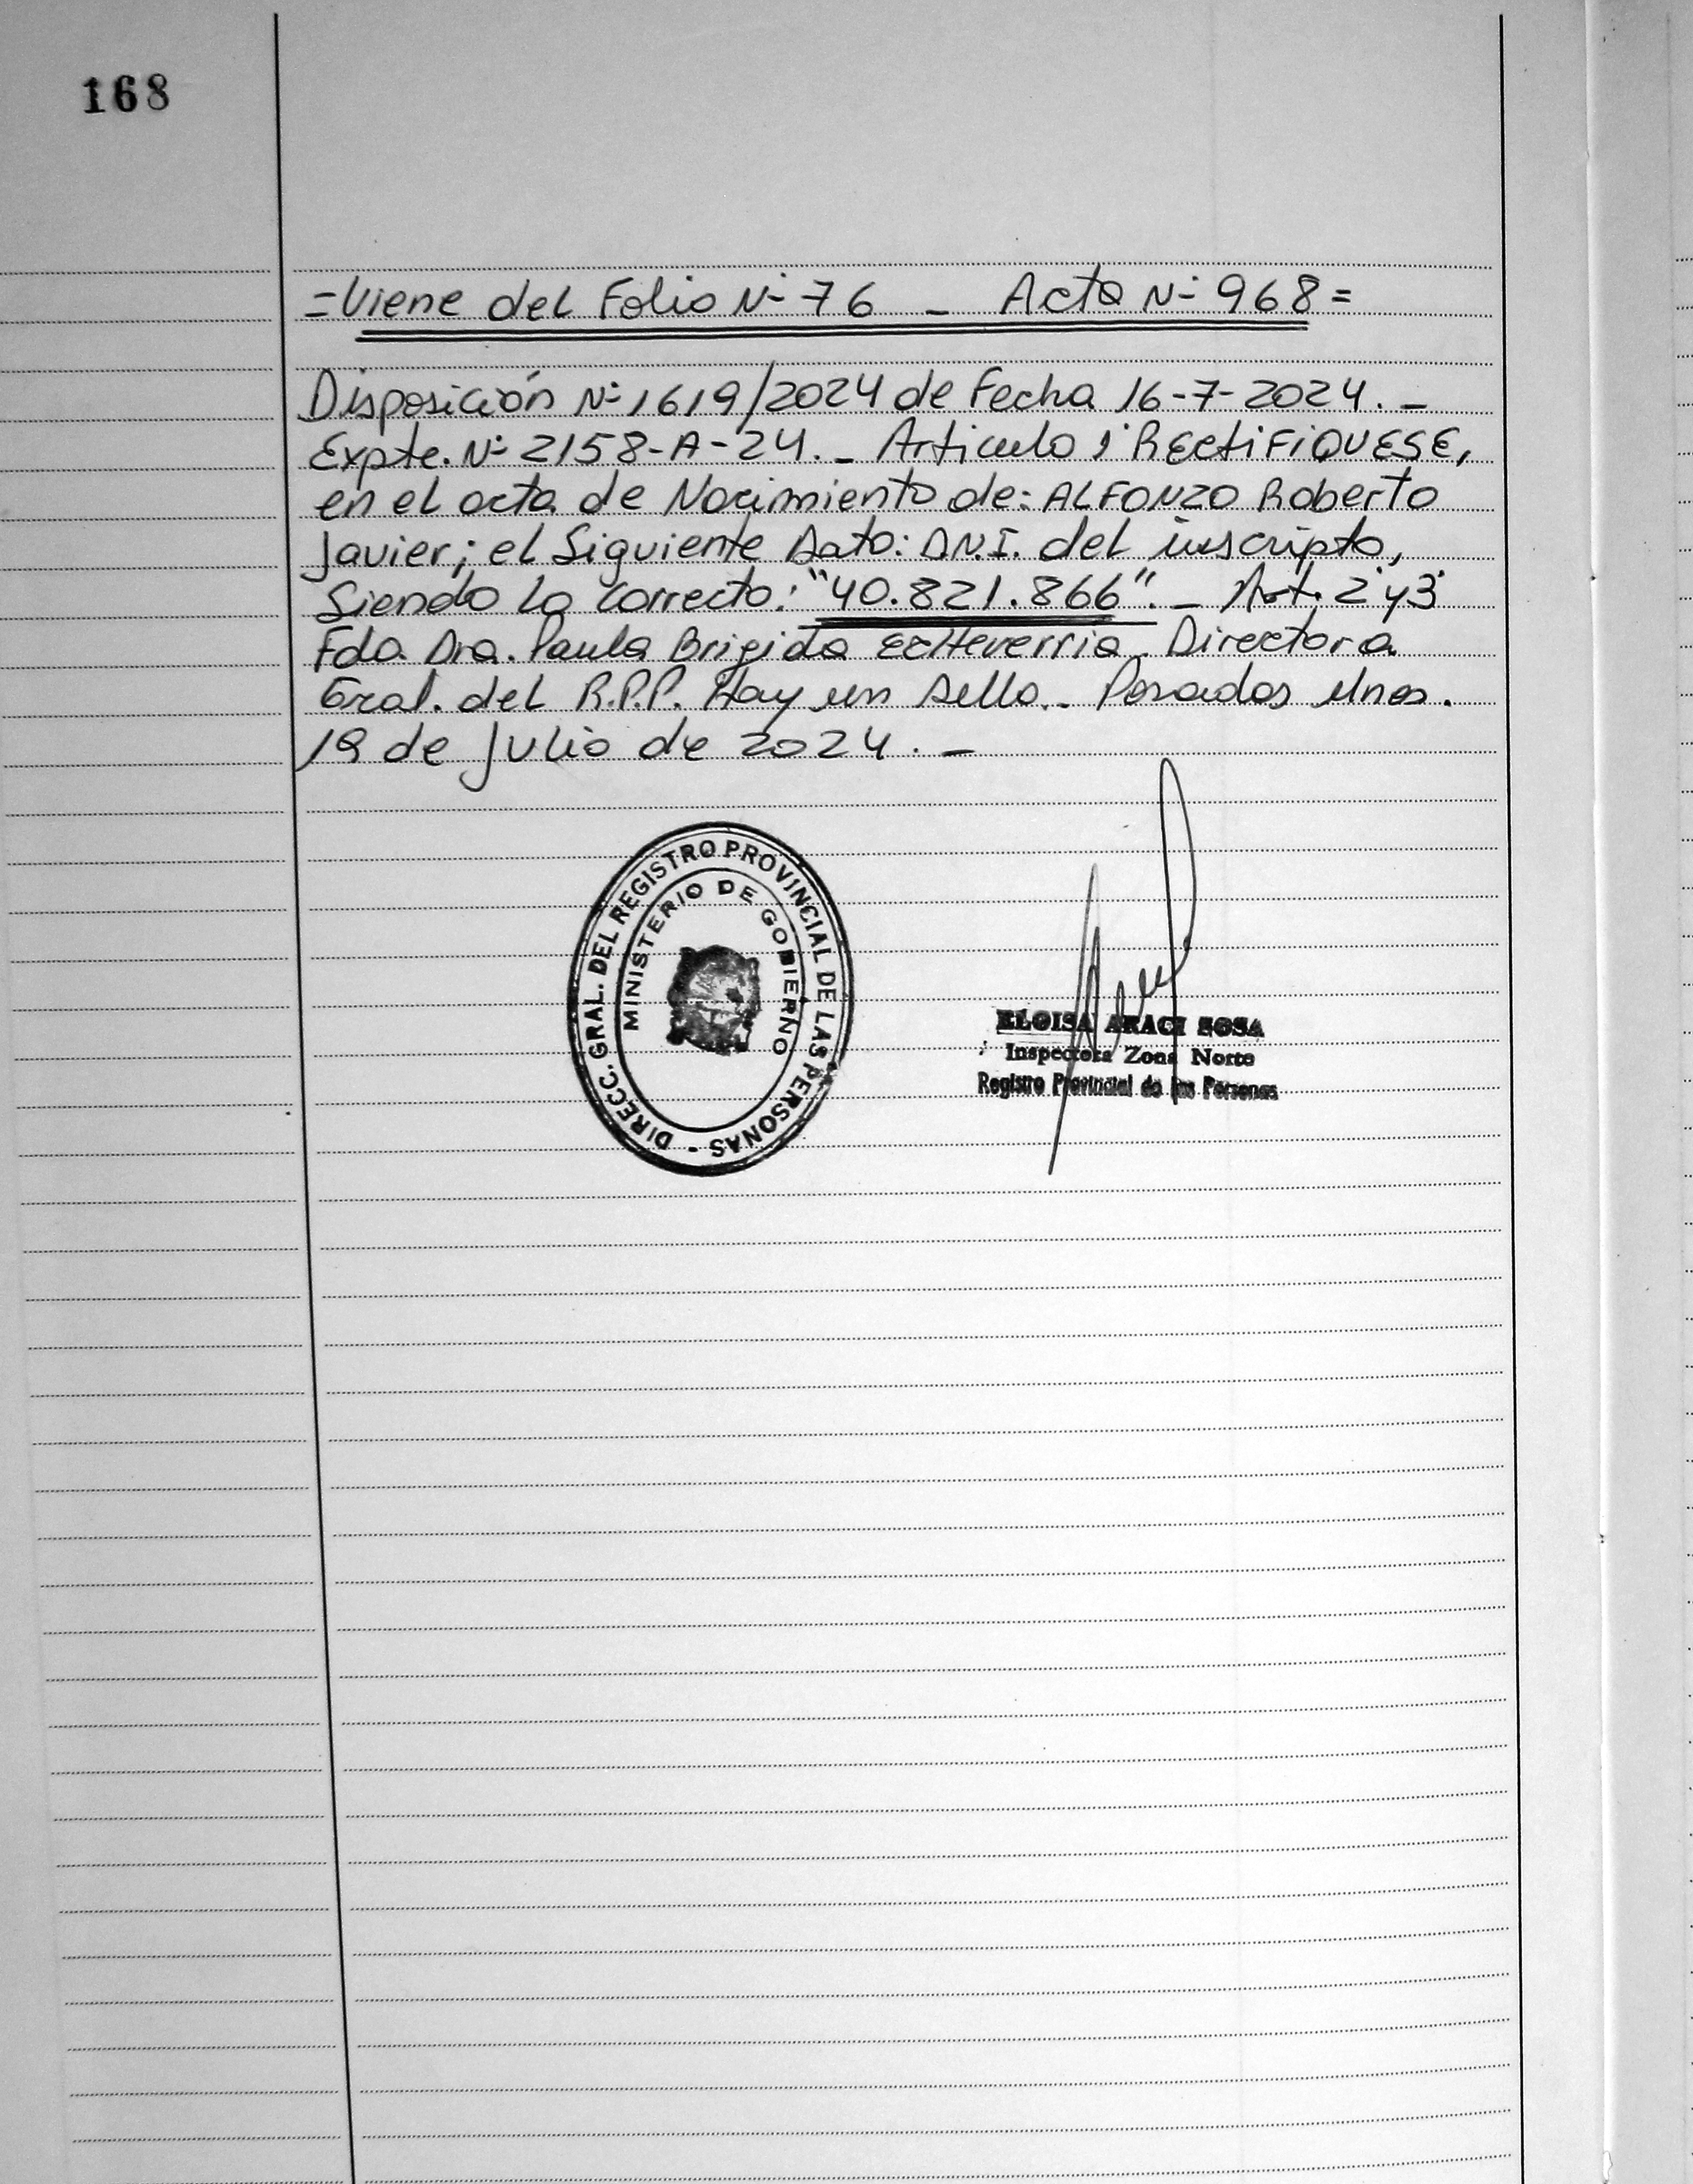 168
=Viene del Folio Nº 76 - Acta Nº 968=
Disposición Nº 1619/2024 de Fecha 16-7-2024.-
Expte. Nº 2158-A-24.- Articulo 1º RECtiFiQUESE,
en el acta de Nacimiento de: ALFONZO Roberto
Javier; el Siguiente Dato: D.N.I. del inscripto,
Siendo lo correcto: "40.821.866".- Art. 2º y 3º
Fdo Dra. Paula Brigida Echeverria. Directora
Gral. del R.P.P. Hay un sello.- Posadas Mnes.
19 de Julio de 2024.-
DIRECC. GRAL. DEL REGISTRO PROVINCIAL DE LAS PERSONAS -
MINISTERIO DE GOBIERNO
ELOISA ARACI SOSA
Inspectora Zona Norte
Registro Provincial de las Personas